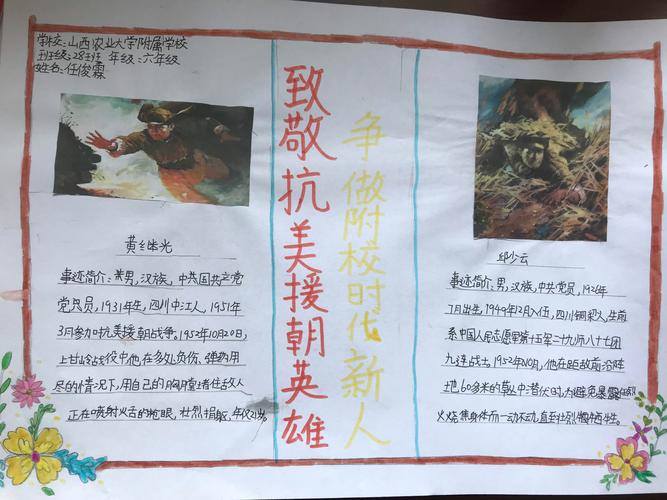 学校:山西农业大学附属学校
班级:28班 年级:六年级
姓名:任俊霖
黄继光
事迹简介:黄男,汉族,中共国共产党
党员,1931年生,四川中江人,1951年
3月参加抗美援朝战争。1952年10月20日,
上甘岭战役中他在多处负伤、弹药用
尽的情况下,用自己的胸膛堵住敌人
正在喷射火舌的枪眼,壮烈捐躯,年仅21岁。
致敬抗美援朝英雄
争做附校时代新人
邱少云
事迹简介:男,汉族,中共党员,1926年
7月出生,1949年12月入伍,四川铜梁人,生前
系中国人民志愿军第十五军二十九师八十七团
九连战士,1952年10月,他在距敌前沿阵
地60多米的草丛中潜伏时,为避免暴露
火烧焦身体而一动不动,直至壮烈牺牲。